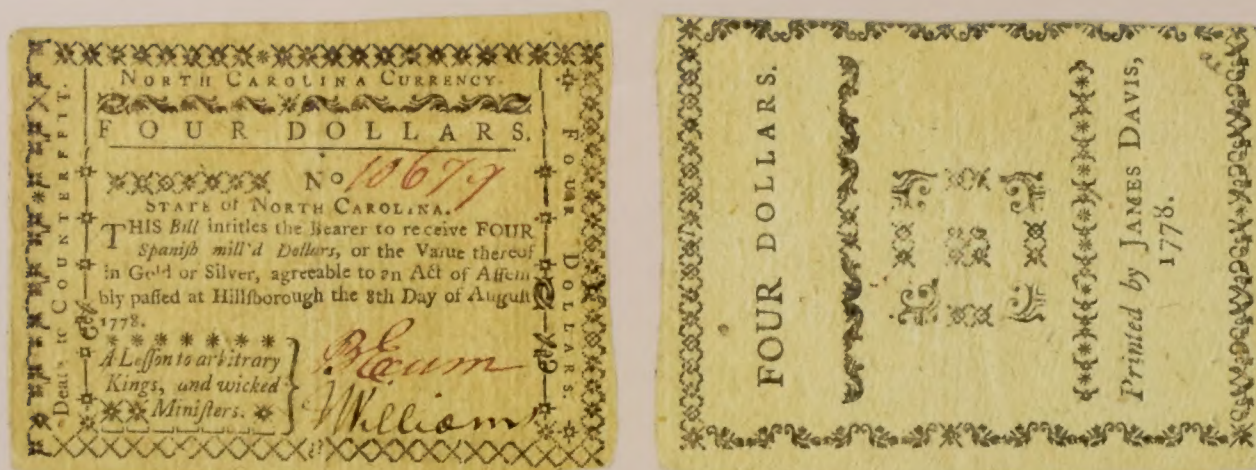 NORTH CAROLINA CURRENCY.
FOUR DOLLARS.
No 10679
STATE of NORTH CAROLINA.
THIS Bill intitles the Bearer to receive FOUR
Spaniſh mill'd Dollars, or the Value thereof
in Gold or Silver, agreeable to an Act of Aſſem
bly paſſed at Hillſborough the 8th Day of Auguſt
1778.
A Leſſon to arbitrary
Kings, and wicked
Miniſters.
B Exum
J Williams
Death to COUNTERFEIT.
FOUR DOLLARS.
FOUR DOLLARS.
Printed by JAMES DAVIS,
1778.